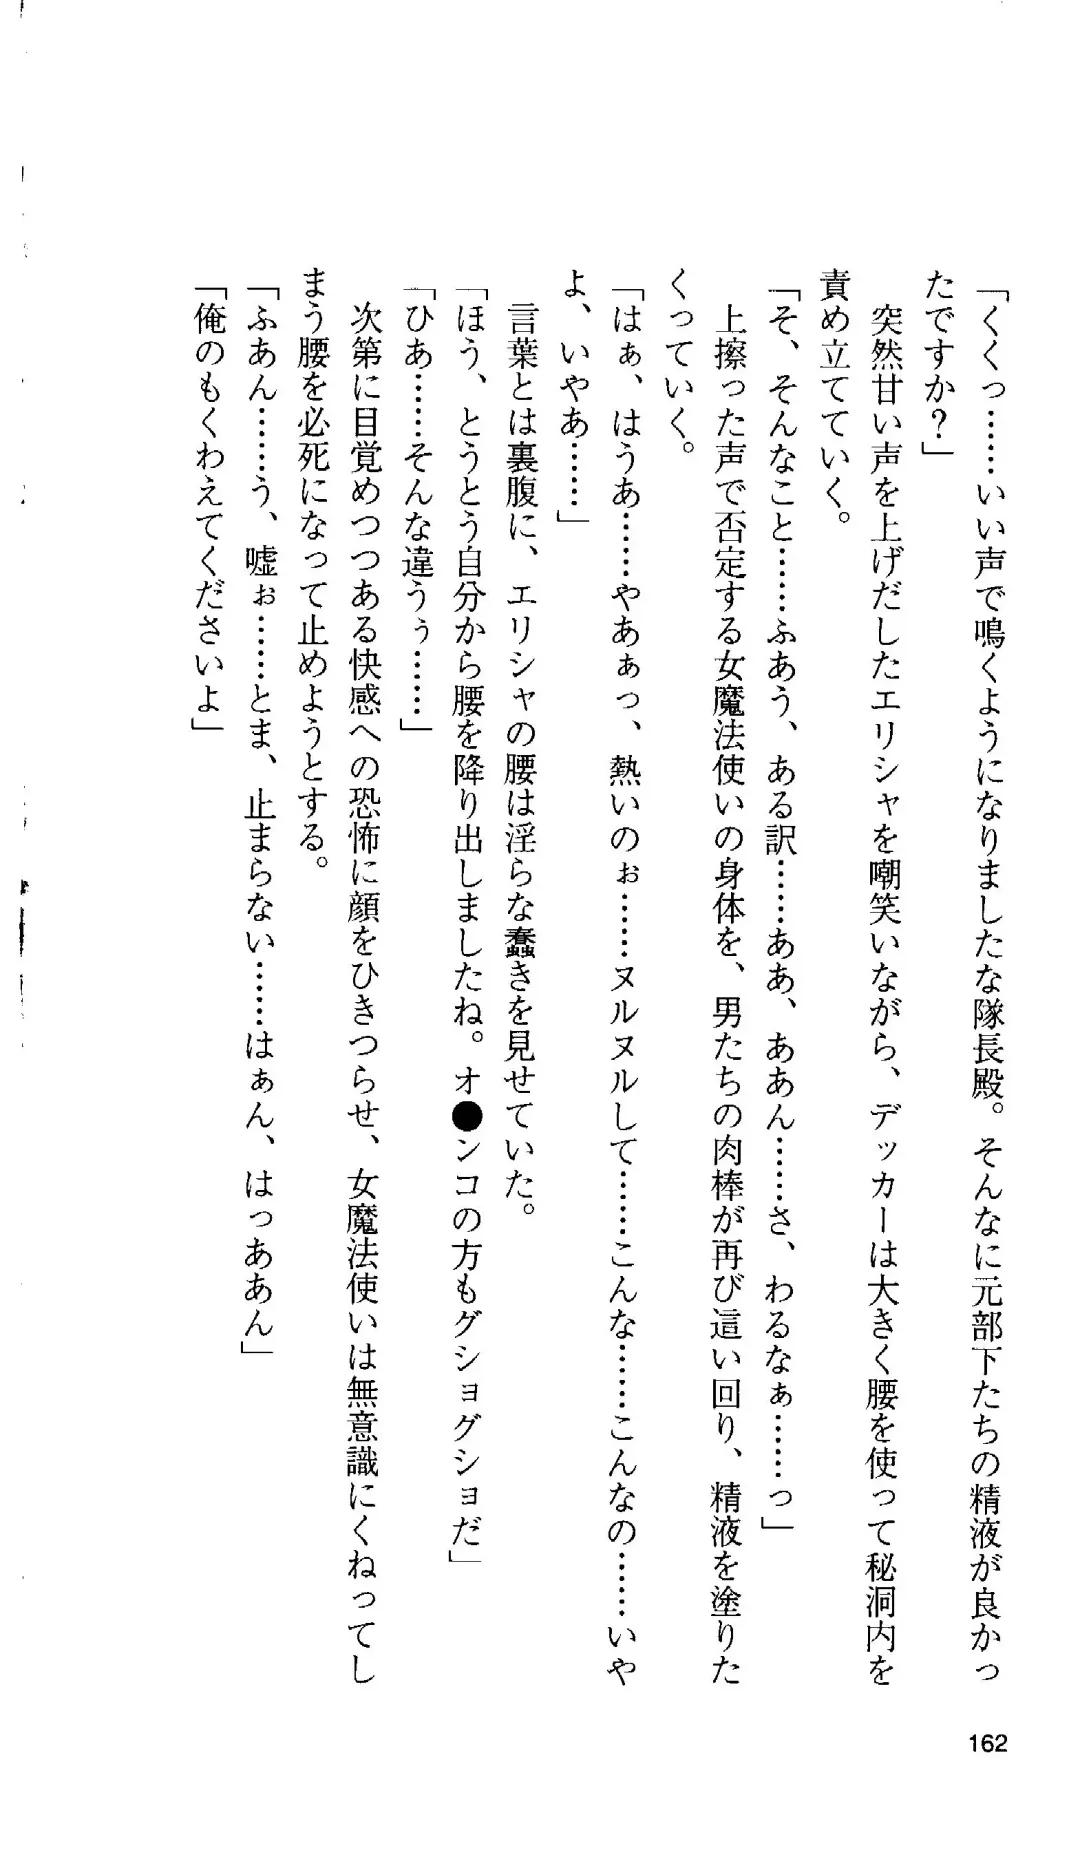 「くくっ……いい声で鳴くようになりましたな隊長殿。そんなに元部下たちの精液が良かっ
たですか？」
　突然甘い声を上げだしたエリシャを嘲笑いながら、デッカーは大きく腰を使って秘洞内を
責め立てていく。
「そ、そんなこと……ふあう、ある訳……ああ、ああん……さ、わるなぁ……っ」
　上擦った声で否定する女魔法使いの身体を、男たちの肉棒が再び這い回り、精液を塗りた
くっていく。
「はぁ、はうあ……やあぁっ、熱いのぉ……ヌルヌルして……こんな……こんなの……いや
よ、いやあ……」
　言葉とは裏腹に、エリシャの腰は淫らな蠢きを見せていた。
「ほう、とうとう自分から腰を降り出しましたね。オ●ンコの方もグショグショだ」
「ひあ……そんな違うぅ……」
　次第に目覚めつつある快感への恐怖に顔をひきつらせ、女魔法使いは無意識にくねってし
まう腰を必死になって止めようとする。
「ふあん……う、嘘ぉ……とま、止まらない……はぁん、はっああん」
「俺のもくわえてくださいよ」
162